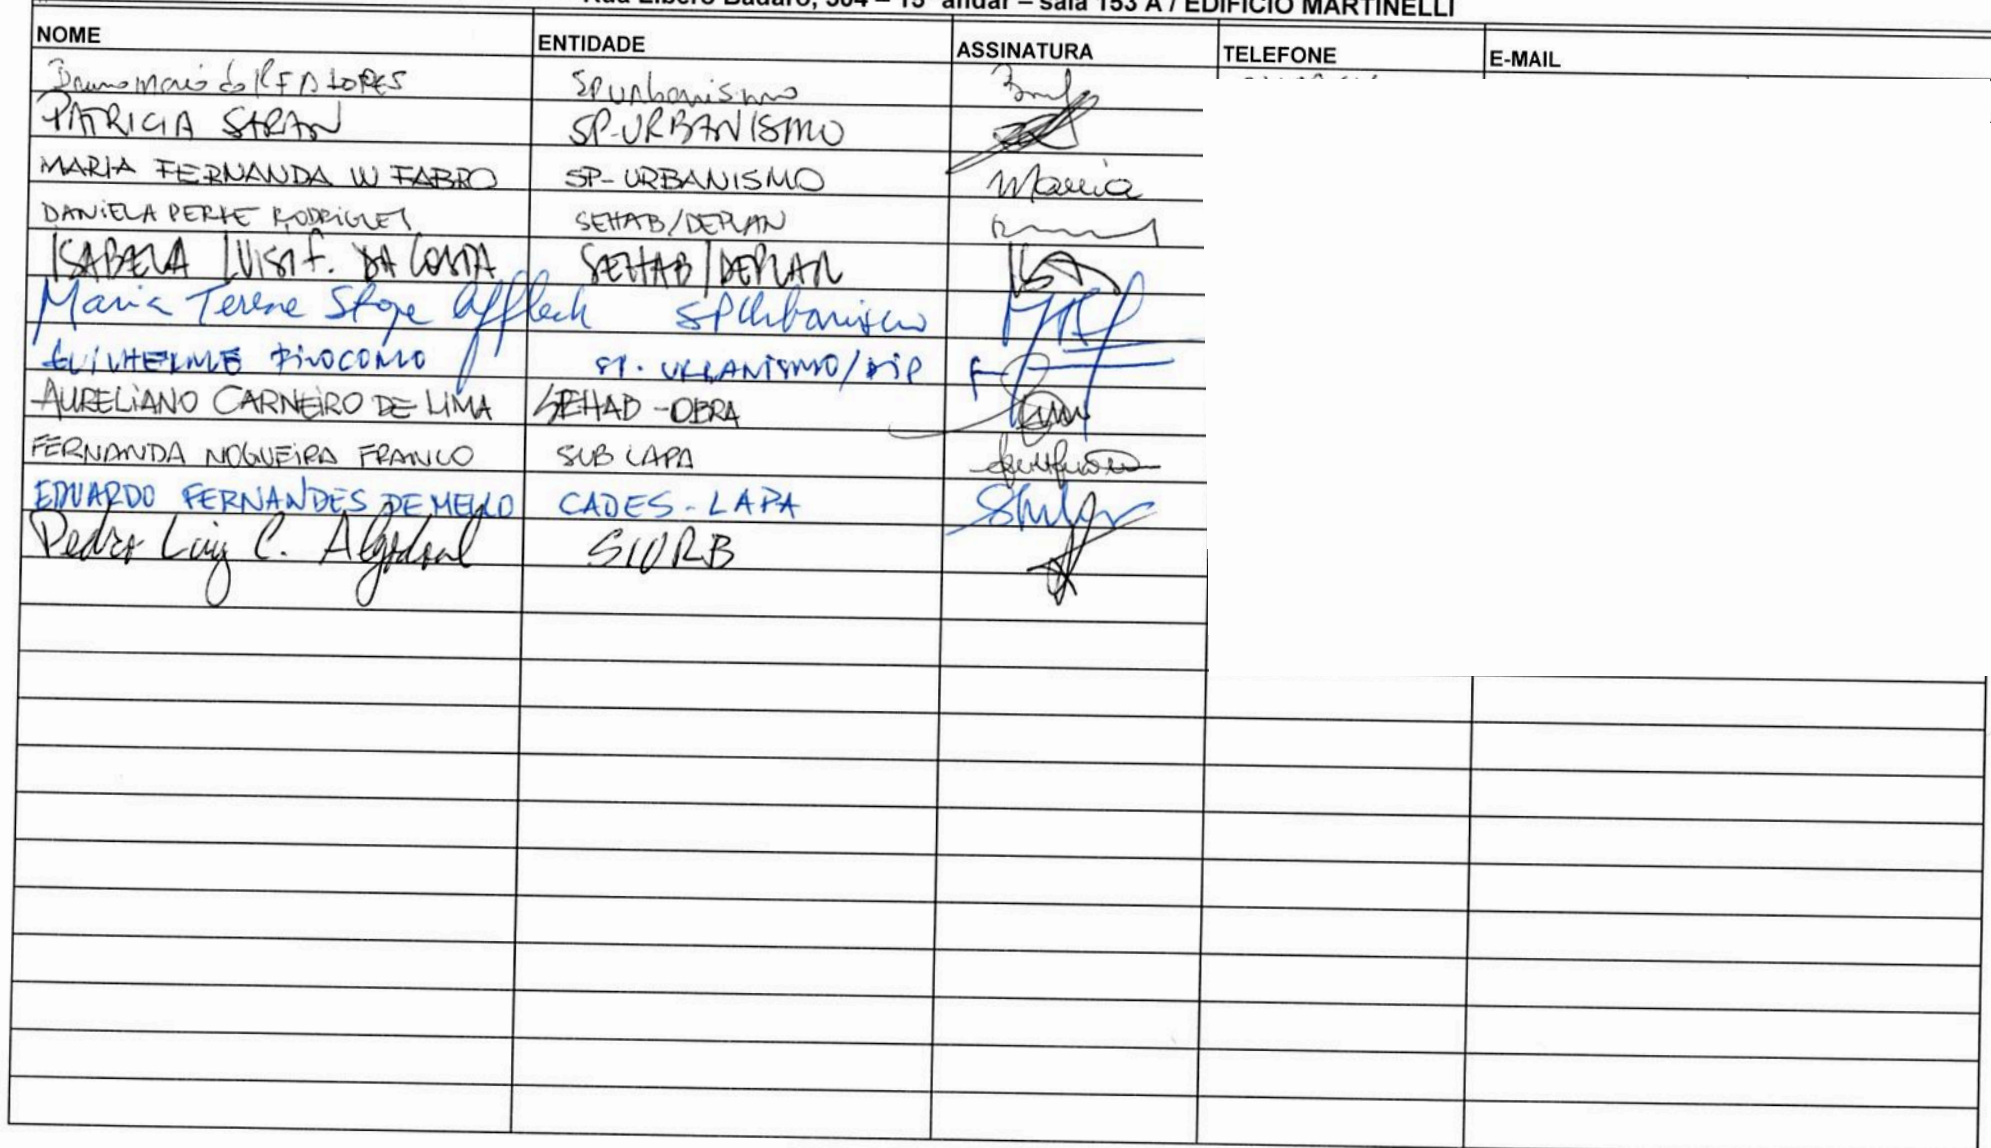 Rua Líbero Badaró, 504 – 15º andar – sala 153 A / EDIFÍCIO MARTINELLI
NOME ENTIDADE ASSINATURA TELEFONE E-MAIL
LOPES SPUrbanismo
PATRICIA SARAN SP-URBANISMO
MARIA FERNANDA W FABRO SP-URBANISMO Maria
DANIELA PERRE RODRIGUES SEHAB/DEPLAN
ISABELA LUISI F. DA COSTA SEHAB/DEPLAN
Maria Teresa Stape Affleck SPUrbanismo
GUILHERME SP.URBANISMO/DIP
AURELIANO CARNEIRO DE LIMA SEHAB-OBRA
FERNANDA NOGUEIRA FRANCO SUB LAPA
EDUARDO FERNANDES DE MELLO CADES-LAPA
Pedro Luiz C. Algodoal SIURB